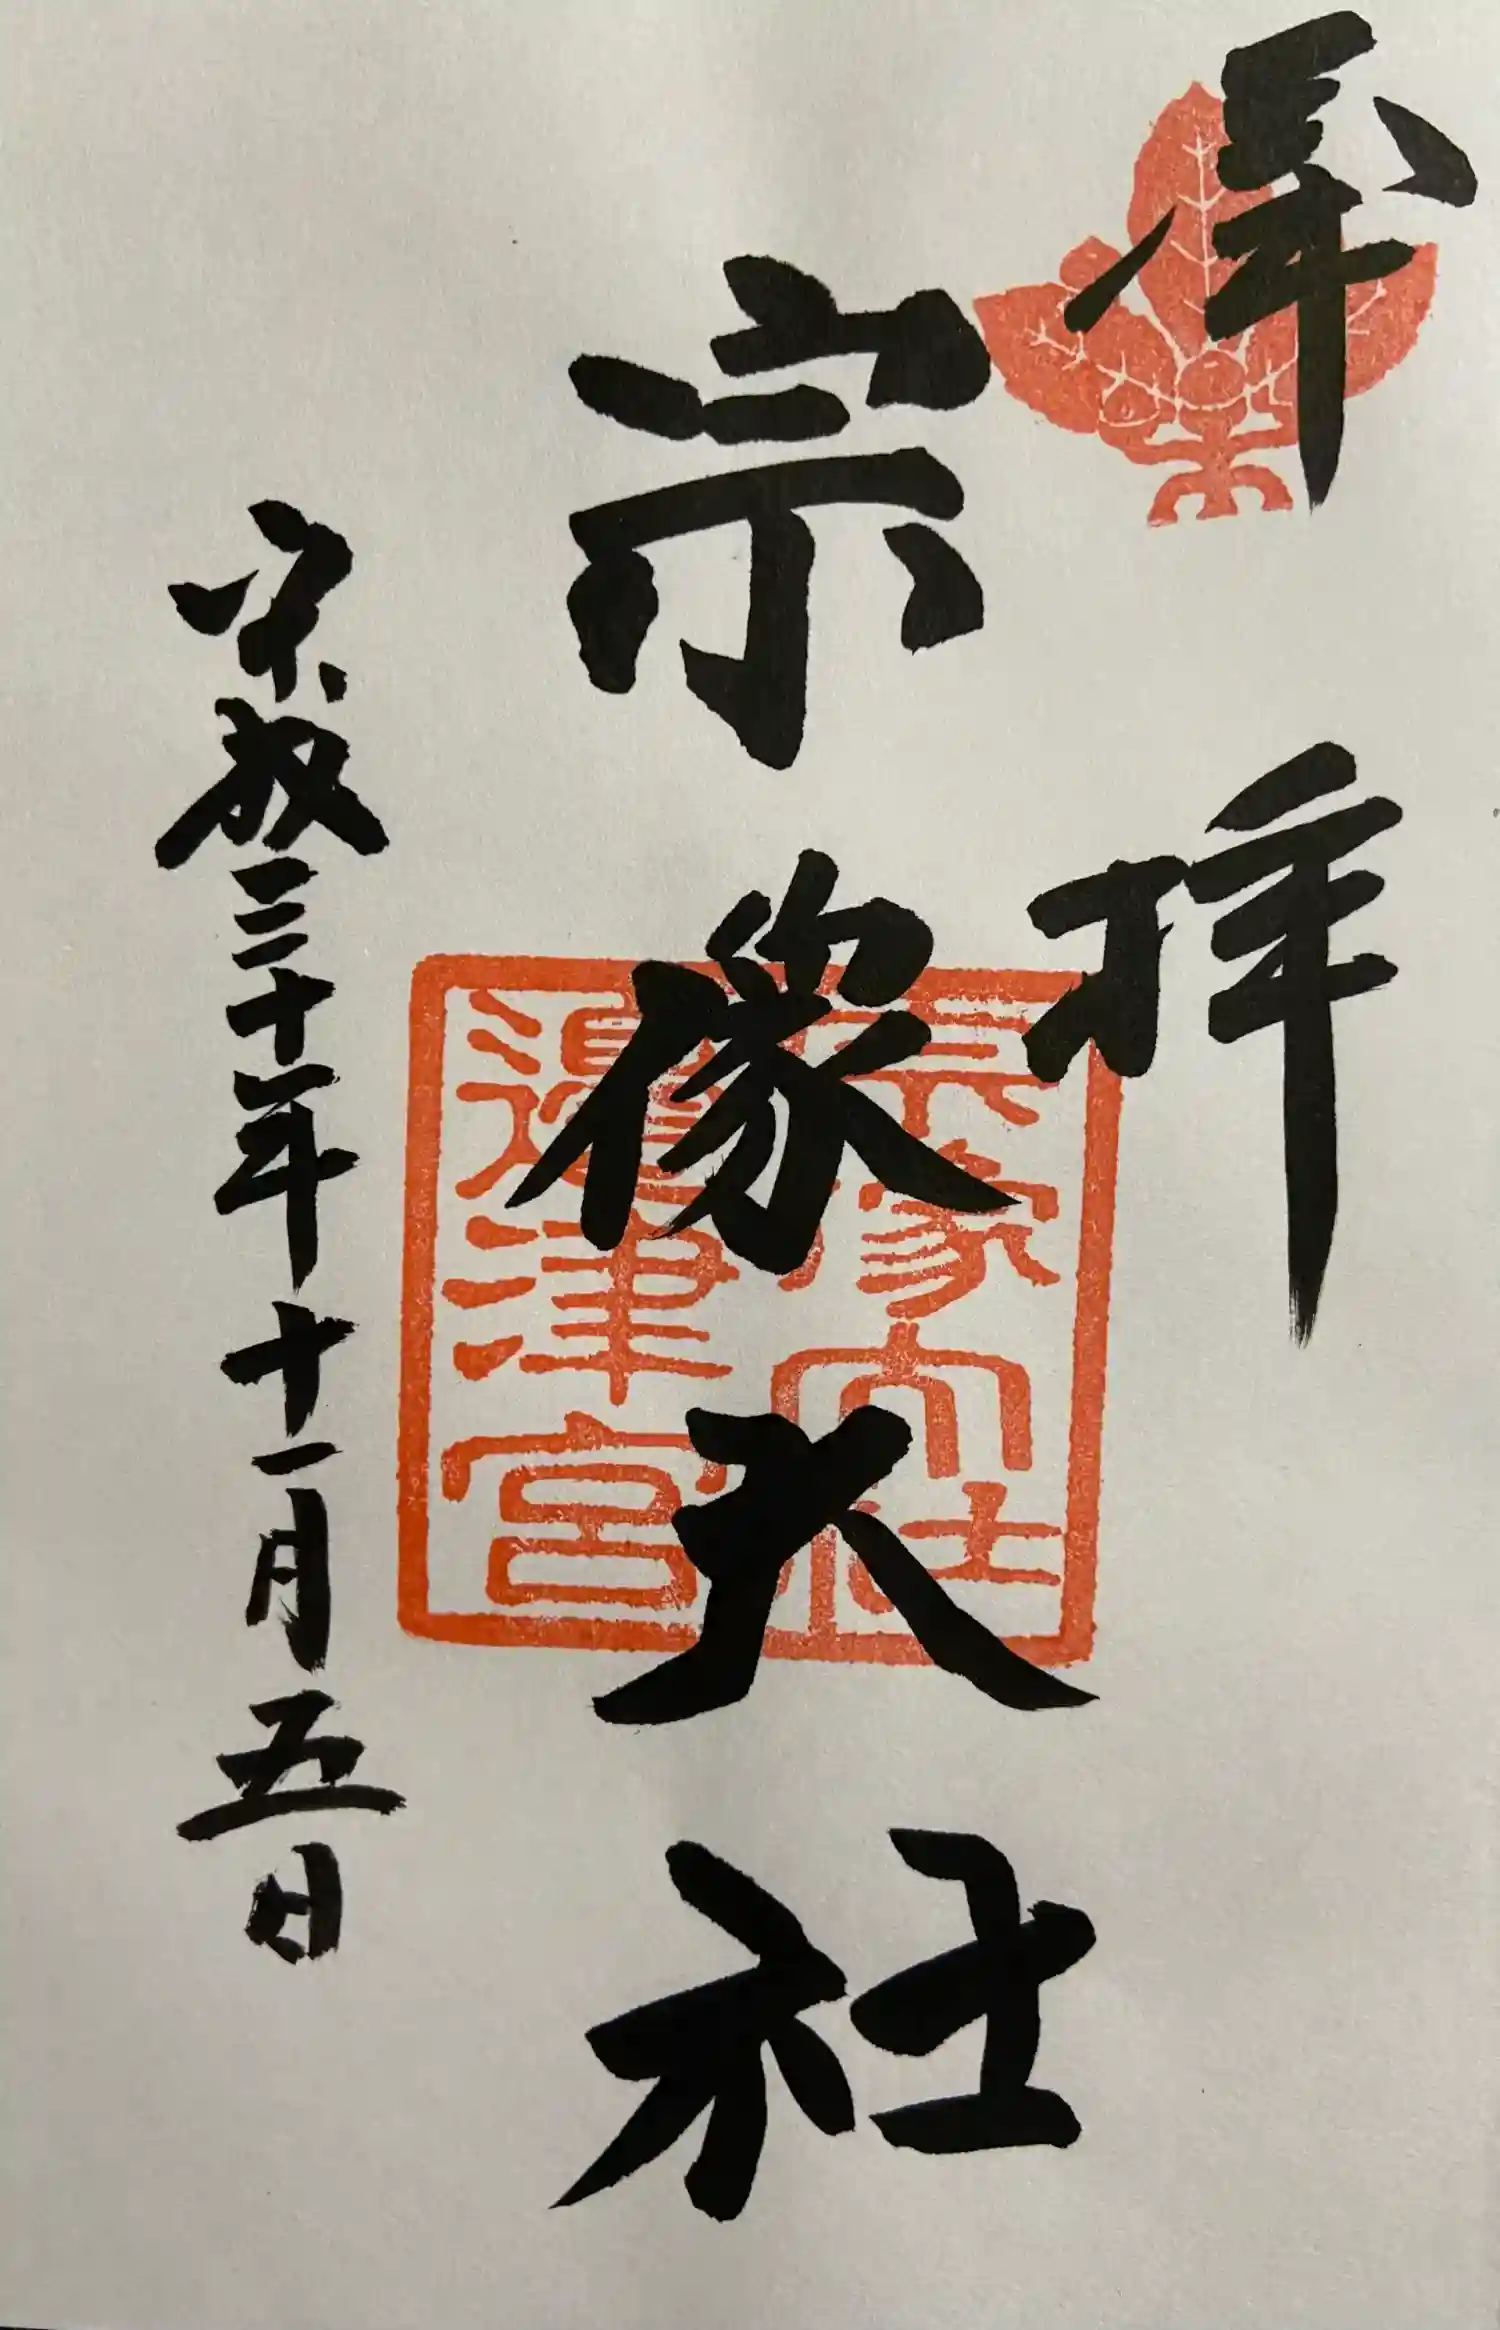 奉拝
宗像大社
平成三十年十一月五日
宗像大社
邊津宮